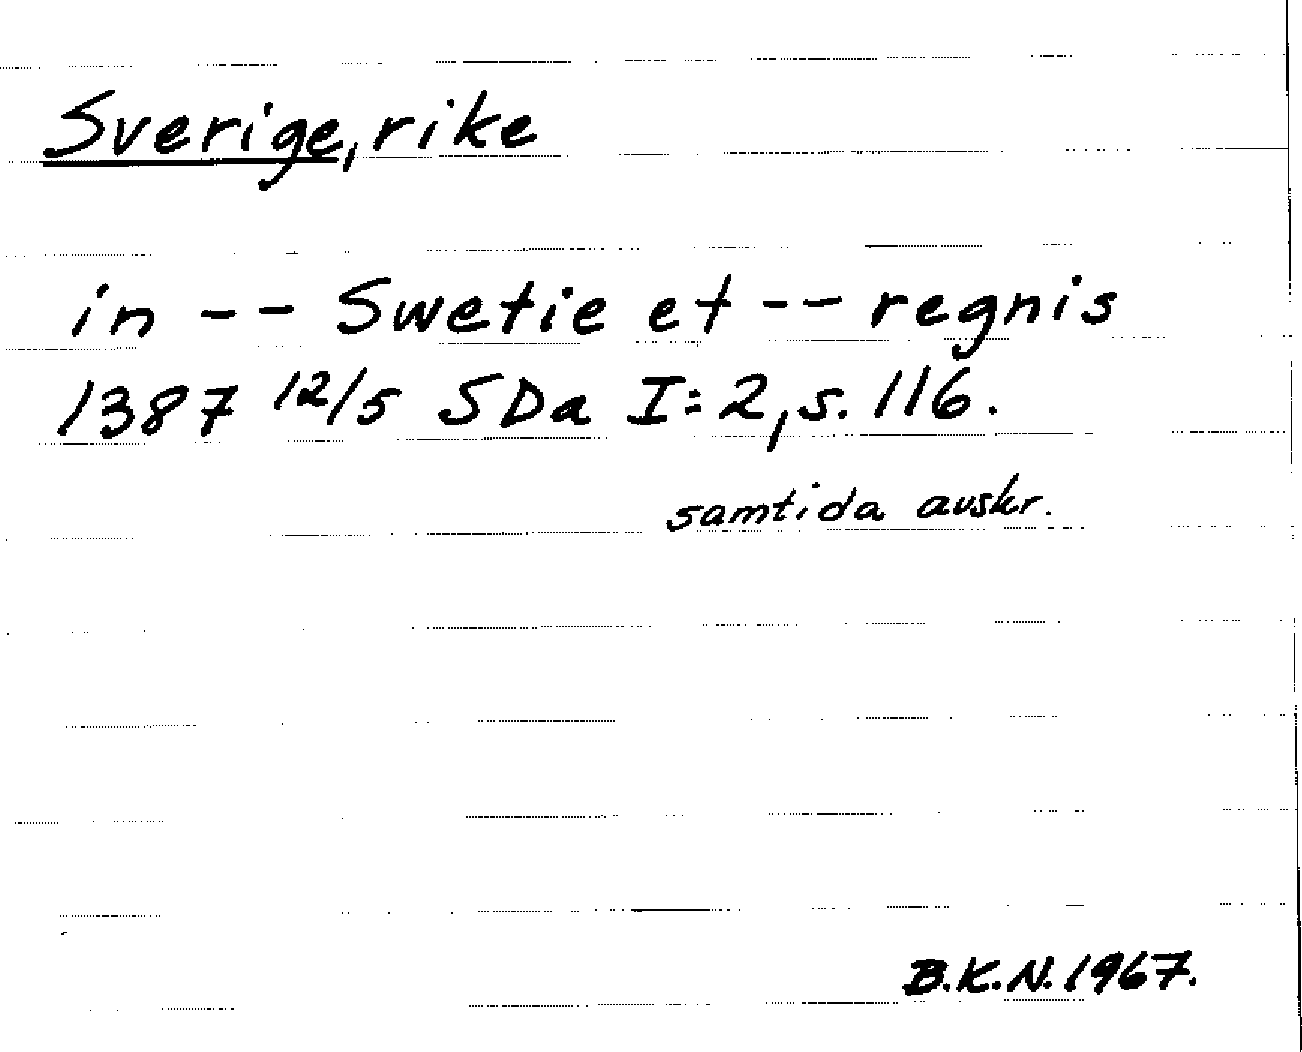 Sverige, rike
in -- Swetie et -- regnis
1387 12/5 SDa I:2, s. 116.
samtida avskr.
B.K.N. 1967.